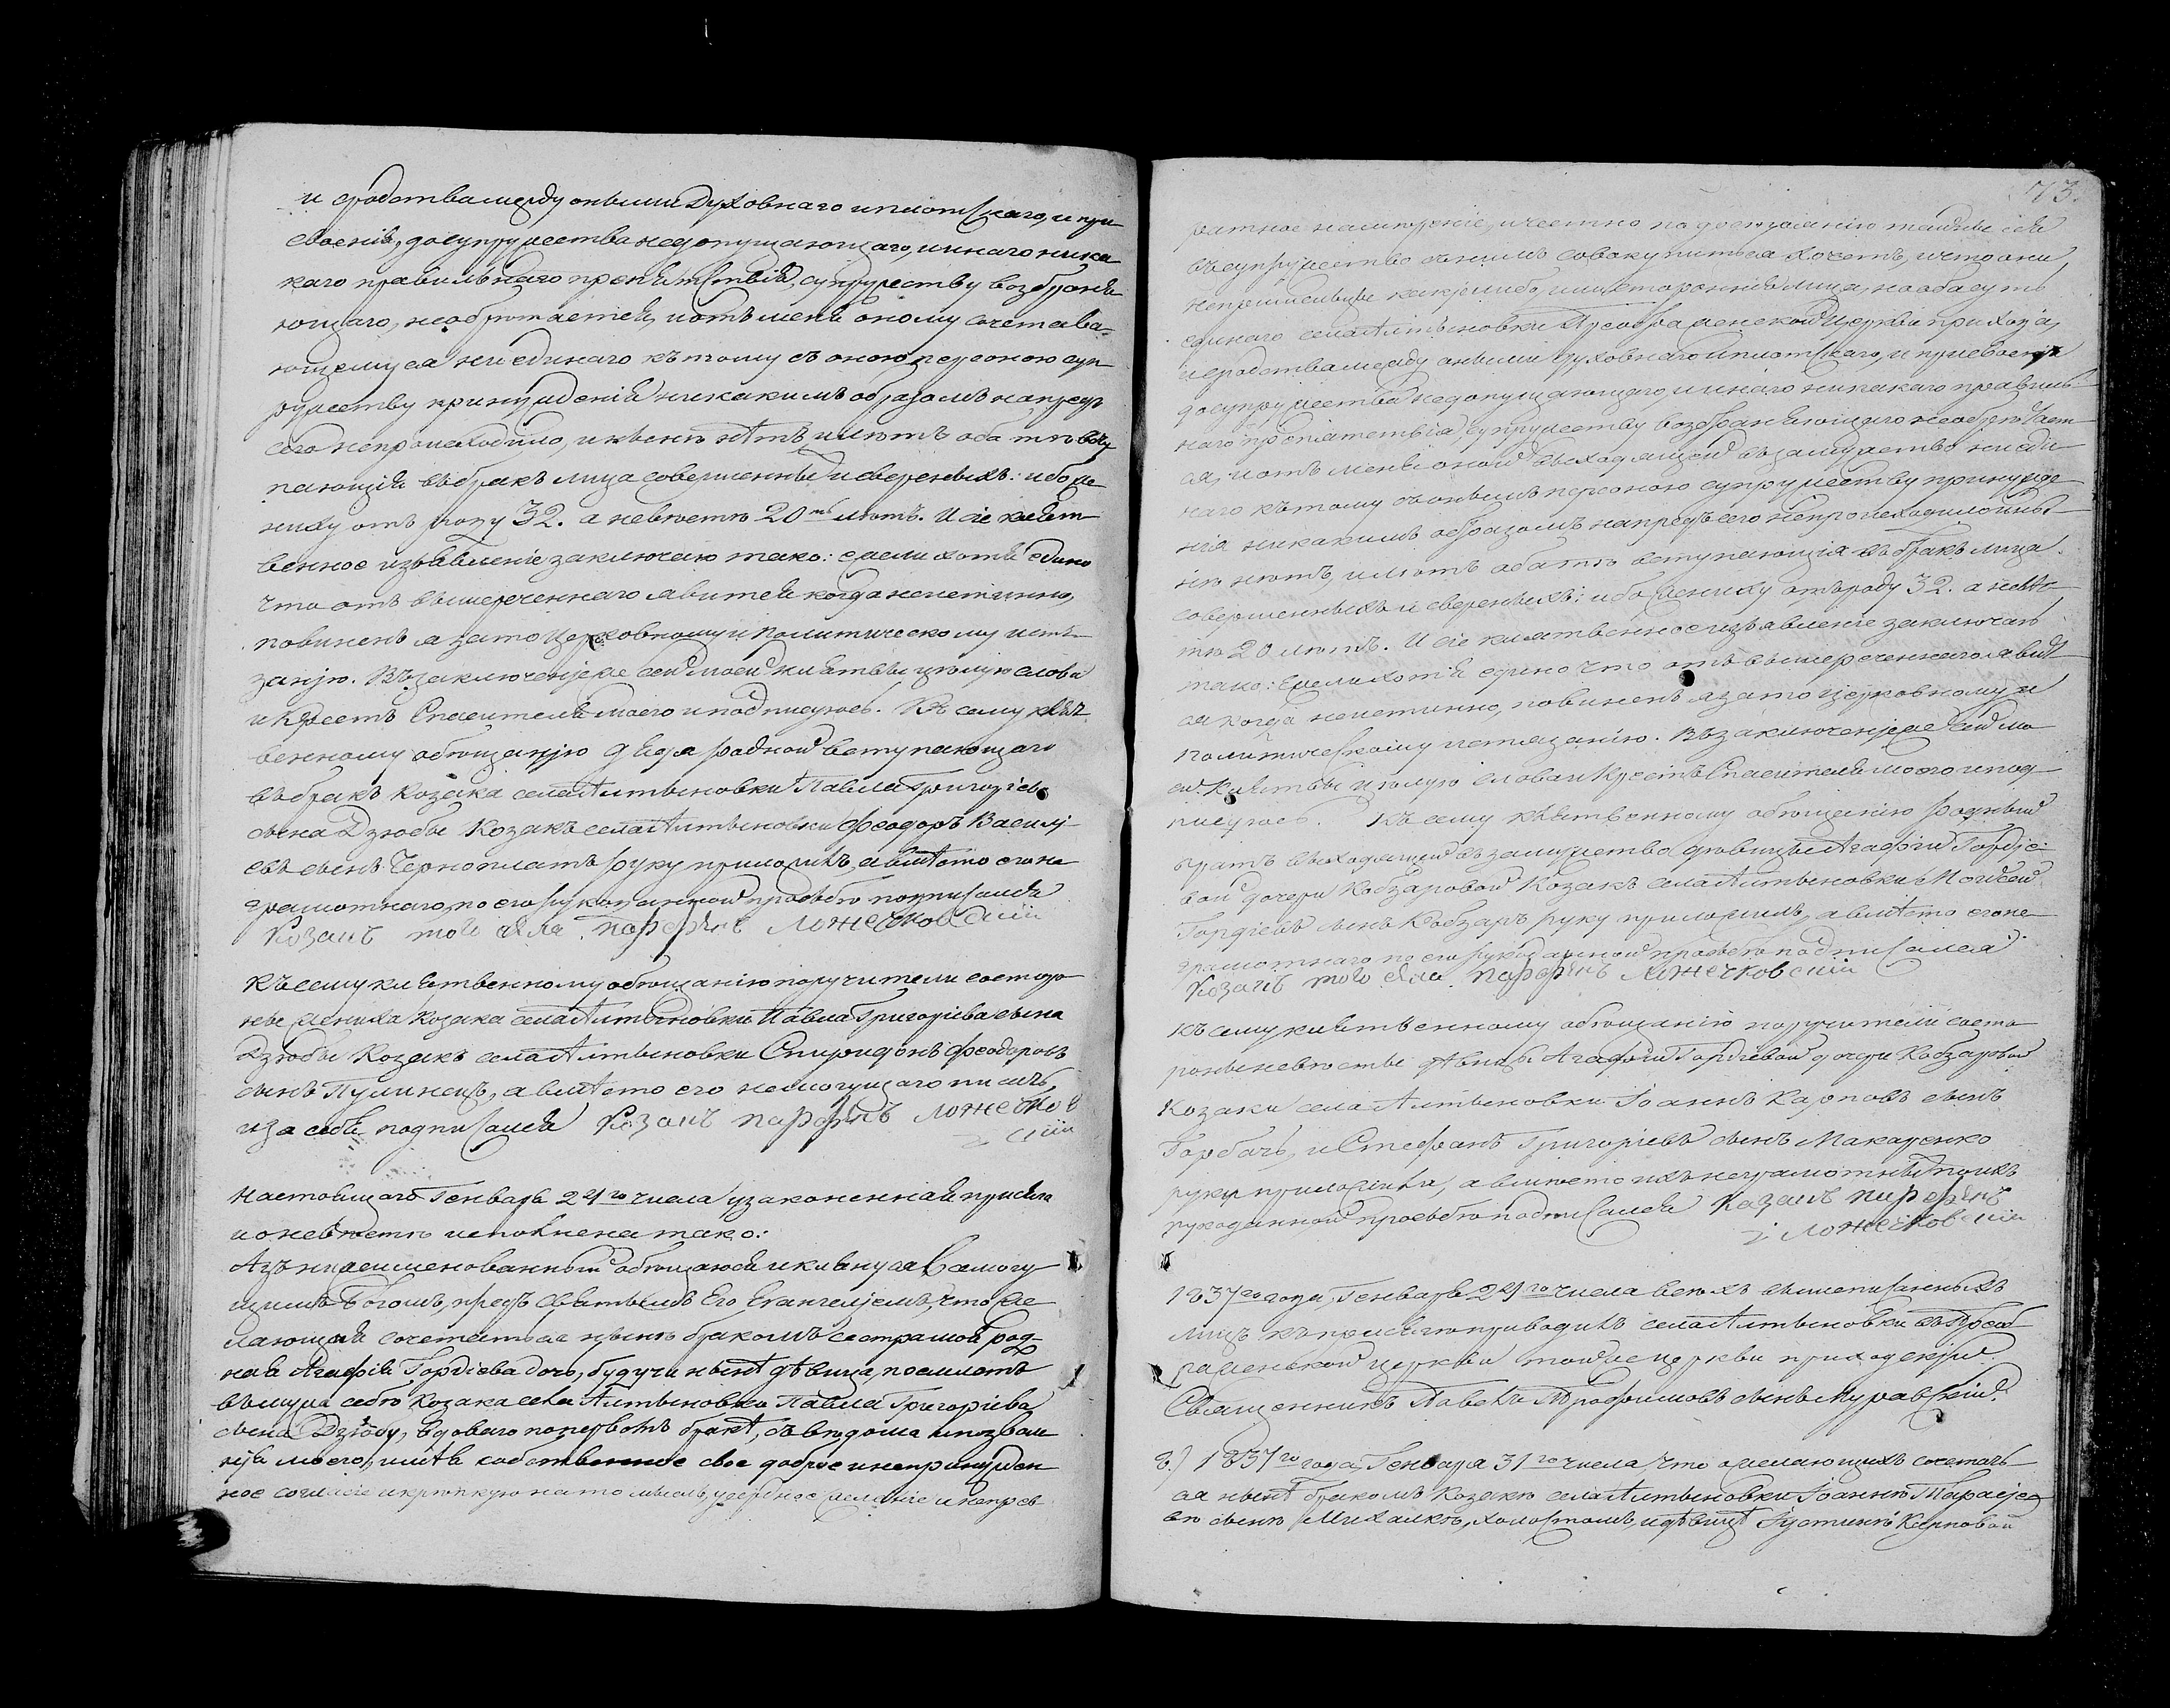 и сродства между оными Духовнаго и плотскаго, и при
своенiя, до супружества недопущающаго, и инаго ника
каго правильнаго препятствiя, супружеству возбраня
ющаго, необрѣтается, и отъ мене оному сочетава-
ющемуся ни единаго къ тому съ оною персоною суп
ружеству принужденiя никакимъ образомъ напредъ
сего непроисходило, и нынѣ нѣтъ, и лѣтъ оба тѣ всту
пающiя въ бракъ лица совершенныхъ и сверсныхъ: ибо же
ниху отъ роду 32. а невѣстѣ 20ть лѣтъ. И сiе клят
венное изъявленiе заключаю тако: ежели хотя едино
что отъ вышереченнаго явится когда неистинно,
повиненъ я за то Церковному и Политическому истя
занiю. Въ заключенiе же сей моей клятвы цѣлую слова
и Крестъ Спасителя моего и подписуюсь. Къ сему клят
венному обѣщанiю дядя родной вступающаго
въ бракъ козака села Алтыновки Павла Григорiева
сына Дзюбы Козакъ села Алтыновки Феодоръ Василi-
евъ сынъ Черноплатъ руку приложилъ, а вмѣсто его не
грамотнаго, по его рукоданной прозбѣ подписался
Козакъ того села Парфенъ Ложечковскiй
Къ сему клятвенному обѣщанiю поручители со сторо
ны жениха Козака села Алтыновки Павла Григорiева сына
Дзюбы Козакъ села Алтыновки Спиридонъ Феодоровъ
сынъ Пулинецъ, а вмѣсто его немогущаго писать,
и за себя подписался Козакъ Парфенъ Ложечков
скiй
Настоящаго Генваря 24го числа узаконенная присяга
и о невѣстѣ исполнена тако:
Азъ нижеименованный обѣщаюся и клянуся Всемогу
щимъ Богомъ, предъ Святымъ Его Евангелiемъ, что же
лающая сочетаться нынѣ бракомъ сестра мой род-
ная Агафiя Гордiева дочь, будучи нынѣ дѣвица, поемлетъ
въ мужа себѣ Козака села Алтыновки Павла Григорiева
сына Дзюбу, вдоваго по первомъ бракѣ, съ вѣдома и позволе
нiя моего, имѣя собственное свое доброе и непринужден
ное согласiе и крѣпкую на то мысль, усердное желанiе и непрев
73.
ратное намѣренiе, и честно по достоянiю
въ супружество съ нимъ совокупиться хочетъ, и что они,
непришельцы какiе либо, или стороннiя лица, но оба суть
единаго села Алтыновки Преображенской Церкви прихода,
и сродства между оными духовнаго и плотскаго, и присвоенiя
до супружества недопущающаго, и инаго никакаго правиль-
наго препятствiя, супружеству возбраняющаго необрѣтает
ся, и отъ мене оной выходящей въ замужество ни еди
наго къ тому съ онымъ персоною супружеству принужде
нiя никакимъ образомъ напредъ сего непроисходило и ны
нѣ нѣтъ, и лѣтъ оба тѣ вступающiя въ бракъ лица
совершенныхъ и сверсныхъ; ибо жениху отъ роду 32. а невѣс
тѣ 20 лѣтъ. И сiе клятвенное изъявленiе заключаю
тако: Ежели хотя едино что отъ вышереченнаго явит
ся когда неистинно, повиненъ я за то церковному и
политическому истязанiю. Въ заключенiе же сей мо
ей клятвы цѣлую слова и Крестъ Спасителя моего и под
писуюсь. Къ сему клятвенному обѣщанiю родный
братъ выходящей въ замужество дѣвицы Агафiи Гордiе-
вой дочери Кобзаровой Козакъ села Алтыновки Моисей
Гордiевъ сынъ Кобзаръ руку приложилъ, а вмѣсто его не
грамотнаго по его рукоданной прозбѣ подписался
Козакъ того села Парфенъ Ложечковскiй
Къ сему клятвенному обѣщанiю поручители со сто
роны невѣсты дѣвицы Агафiи Гордiевой дочери Кобзаровой
Козаки села Алтыновки Iоаннъ Карповъ сынъ
Горбачъ, и Стефанъ Григорiевъ сынъ Макаренко
руку приложили, а вмѣсто ихъ неграмотныхъ по ихъ
рукоданной прозбѣ подписался Козакъ Парфенъ
Ложечковскiй
1837го года, Генваря 24го числа всѣхъ вышеписанныхъ
лицъ къ присягѣ приводилъ села Алтыновки въ Преоб
раженской церкви тоиже церкви приходскiй
Священникъ Павелъ Трофимовъ сынъ Муравскiй
8.) 1837го года, Генваря 31го числа что о желающихъ сочетать
ся нынѣ бракомъ Козакѣ села Алтыновки Iоаннѣ Тарасiе
вѣ сынѣ Михалкѣ, холостомъ, и дѣвицѣ Iустинѣ Карповой